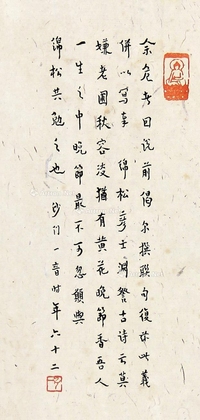 余曰說前偈尔撰聯句復此義
併以寫奉 綿松彥士 淵詧古詩云莫
嫌老圃秋容淡猶有黃花晚節香吾人
一生之中晚節最不可忽願與
綿松共勉之也 沙門一音時年六十二